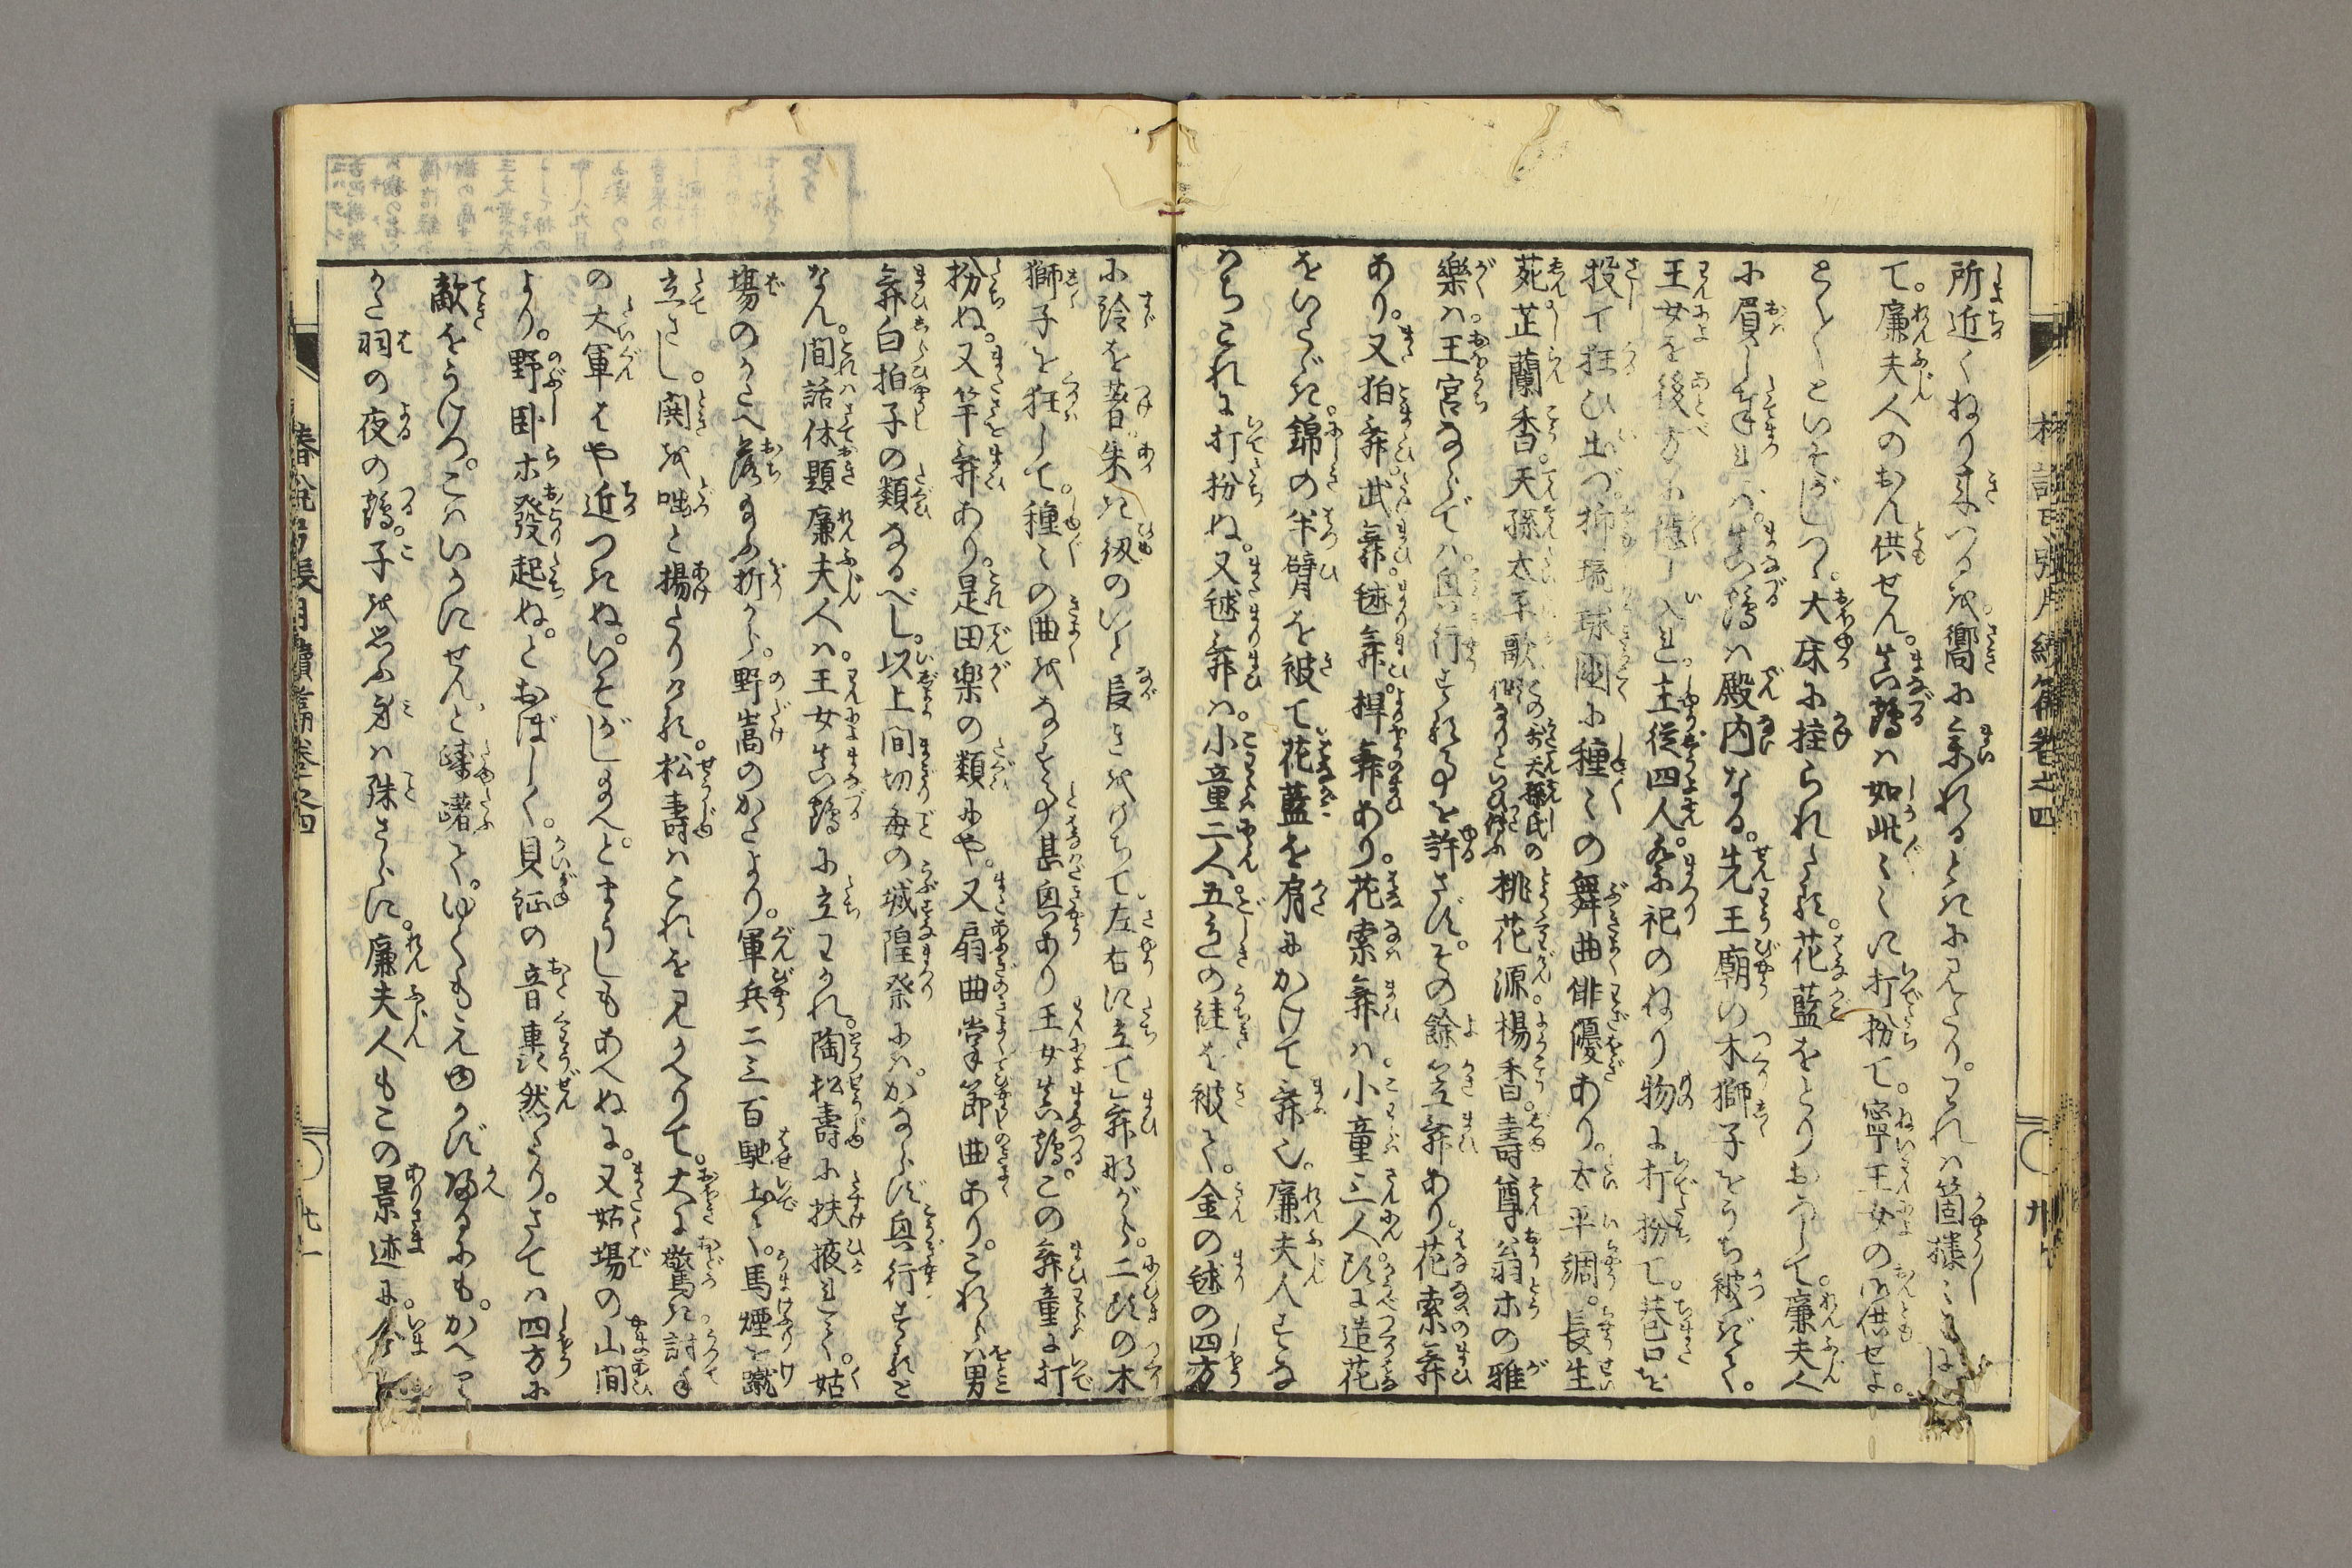 椿説弓張月續篇卷之四
所近くねり来つるを。嚮に余れるときに見たり。われは箇様〻〻
て。廉夫人のおん供せん。真鶴は如此〻〻に打扮て。寧王女の御供せよ。
とく〳〵といそがしつゝ。大床に挂られたる。花藍をとりおろして。廉夫人
に負し奉れば。真鶴は殿内なる。先王廟の木獅子をうち被ぎて。
王女を後方に隱し入れ。主従四人。祭祀のねり物に打扮て。巷口を
投て狂ひ出づ。抑琉球國に種〻の舞曲俳優あり。太平調。長生
苑。芷蘭香。天孫太平歌。桃花源。楊香。壽尊翁ホの雅
樂は。王宮ならでは。興行することを許さず。その餘笠舞あり。花索舞
あり。又拍舞。武舞。毬舞。桿舞あり。花索舞は。小童三人頭に造花
をいたゞき。錦の半臂を被て。花藍を肩にかけて舞也。廉夫人すな
はちこれに打扮ぬ。又毬舞は。小童二人五色の袿を被て。金の毬の四方
に鈴を著。朱き紐のいと長きをもちて。左右に立て舞ながら。二頭の木
獅子を狂して。種〻の曲をなすこと甚興あり。王女真鶴。この舞童に打
扮ぬ。又竿舞あり。是田楽の類にや。又扇曲掌節曲あり。これらは男
舞白拍子の類なるべし。以上間切毎の城隍祭には。かならず興行すると
なん。間話休題廉夫人は。王女真鶴に立わかれ。陶松壽に扶掖れて。姑
場のかたへ落給ふ折から。野嵩のかたより。軍兵二三百馳出て。馬煙を蹴
立さし。鬨を咄と揚たりける。松壽はこれを見かへりて。大に驚き。討手
の大軍はや近つきぬ。いそがし給へ。とまうしもあへぬに。又姑場の山間
より。野臥ホ發起ぬ。とおぼしく。貝鉦の音車然たり。さては四方に
敵をうけつ。こはいかにせん。と躊躇て。ゆくもえゆかず。歸るにも。かへり
かた羽の夜の鶴。子を思ふ身は殊さらに。廉夫人もこの景迹に。今
椿説弓張月續篇卷之四